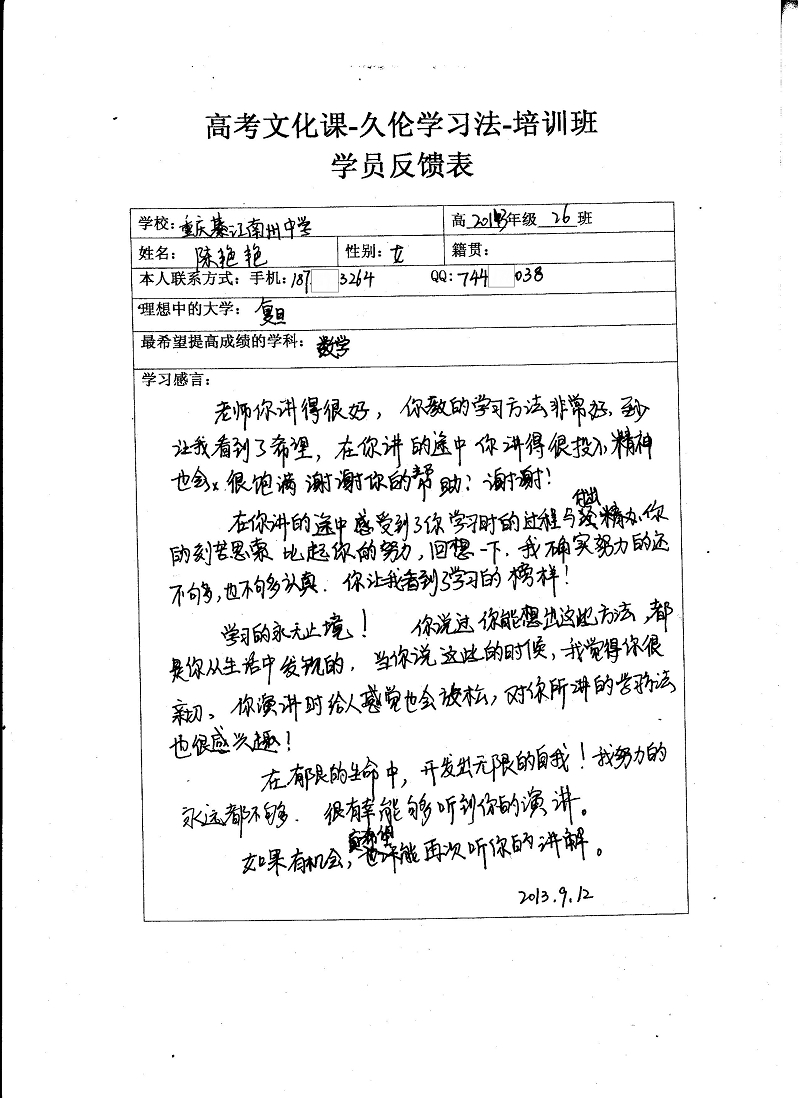 高考文化课-久伦学习法-培训班
学员反馈表
学校：重庆綦江南州中学 高 2014年级 26 班
姓名：陈艳艳 性别：女 籍贯：
本人联系方式：手机：187 3264 QQ：744 038
理想中的大学：复旦
最希望提高成绩的学科：数学
学习感言：
老师你讲得很好，你教的学习方法非常好，至少
让我看到了希望，在你讲的途中你讲得很投入，精神
也会很饱满谢谢你的帮助！谢谢！
在你讲的途中感受到了你学习时的过程与付出精力，你
的刻苦思索比起你的努力，回想一下，我确实努力的还
不够多，也不够多认真．你让我看到了学习的榜样！
学习的永无止境！ 你说过你能想出这些方法，都
是你从生活中发现的，当你说这些的时候，我觉得你很
亲切。你演讲时给人感觉也会放松，对你所讲的学习方法
也很感兴趣！
在有限的生命中，开发出无限的自我！我努力的
永远都不够．很有幸能够听到你的演讲。
如果有机会，更希望也许能再次听你的讲解。
2013.9.12